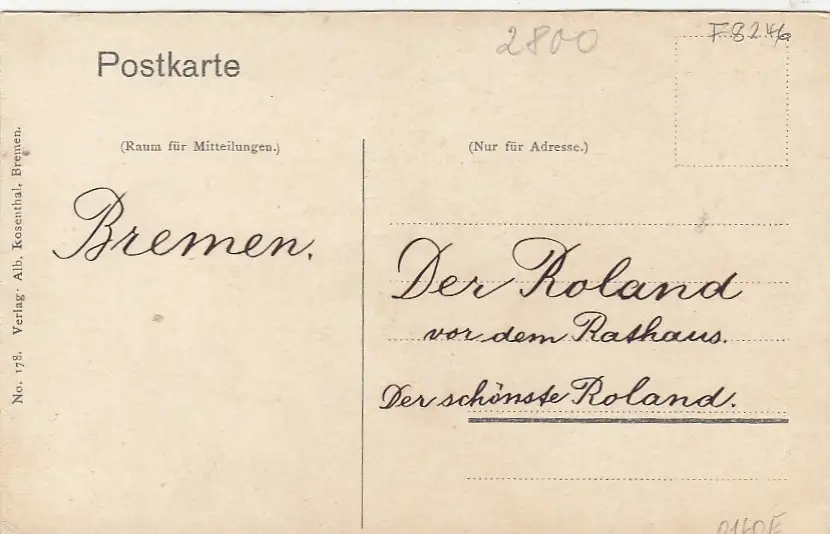 Postkarte
2800
F8246
(Raum für Mitteilungen.)
(Nur für Adresse.)
Bremen.
Der Roland
vor dem Rathaus.
Der schönste Roland.
No. 178. Verlag Alb. Rosenthal, Bremen.